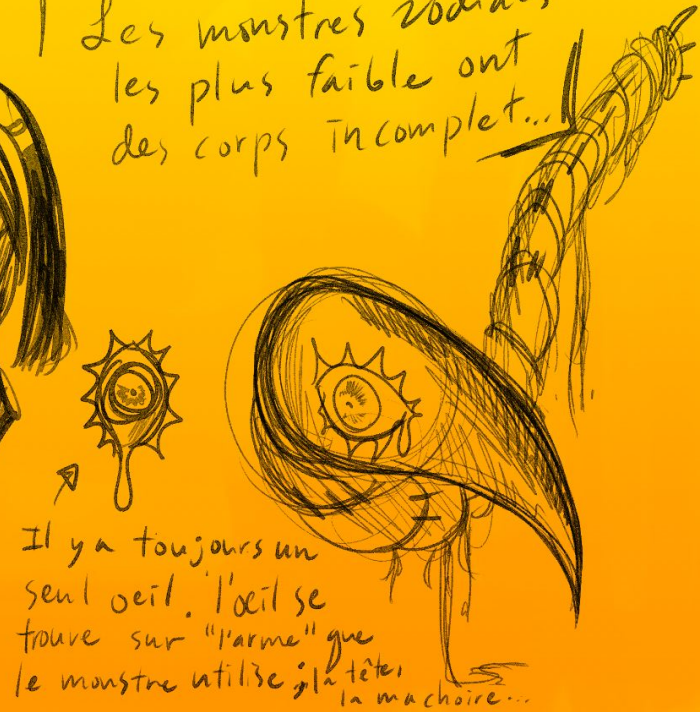 Les monstres zodiacs
les plus faible ont
des corps incomplet...
Il y a toujours un
seul oeil. l'œil se
trouve sur "l'arme" que
le monstre utilise ; la tête,
la machoire...